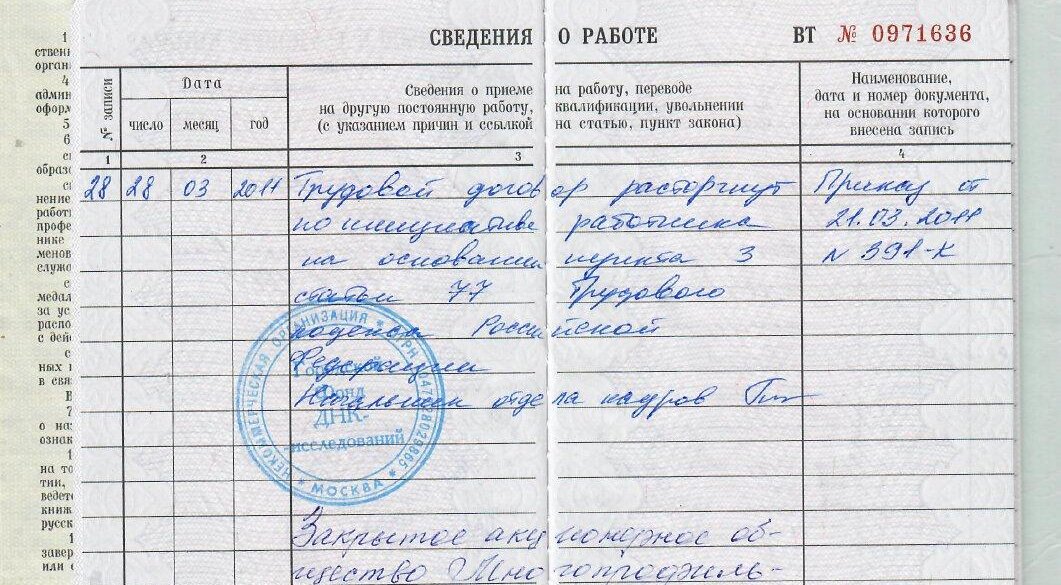 СВЕДЕНИЯ О РАБОТЕ ВТ № 0971636
№ записи
Дата
число месяц год
Сведения о приеме на работу, переводе
на другую постоянную работу, квалификации, увольнении
(с указанием причин и ссылкой на статью, пункт закона)
Наименование,
дата и номер документа,
на основании которого
внесена запись
1 2 3 4
28 28 03 2011 Трудовой договор расторгнут Приказ от
по инициативе работника 21.03.2011
на основании пункта 3 N 391-К
статьи 77 Трудового
кодекса Российской
Федерации
Начальник отдела кадров
Закрытое акционерное об-
щество Многопрофиль-
НЕКОММЕРЧЕСКАЯ ОРГАНИЗАЦИЯ * ОГРН
Фонд
ДНК-
исследований
* МОСКВА *
1
ствен
орган
4
админ
оформ
5
6
образ
нение
работ
профе
нике
менов
служ
медал
за ус
распо
с дей
ных
в свя
В
7
о на
ознак
1
на то
тии,
ведет
книж
русск
1
завер
или